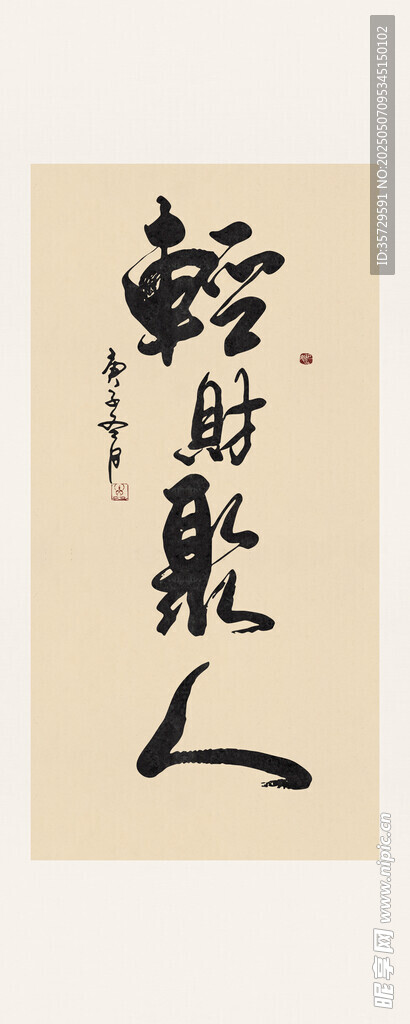 輕財聚人
庚子冬月
ID:35729591 NO:20250507095345150102
昵享网 www.nipic.cn